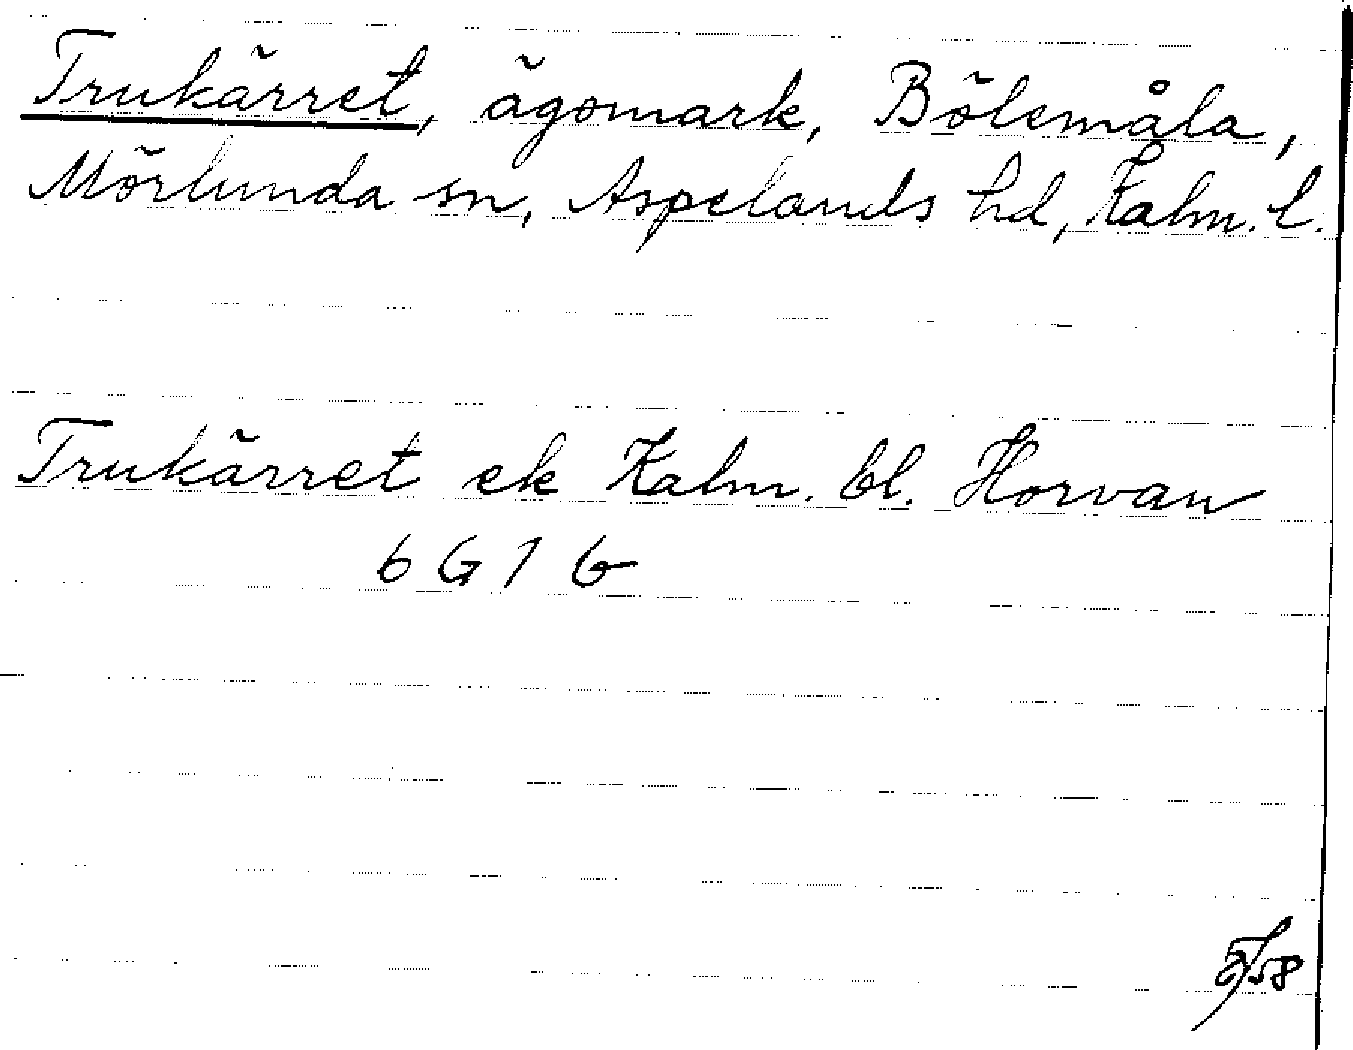 Trukärret, ägomark, Bölemåla,
Mörlunda sn, Aspelands hd, Kalm. l.
Trukärret ek Kalm. bl. Horvan
6 G 1 b